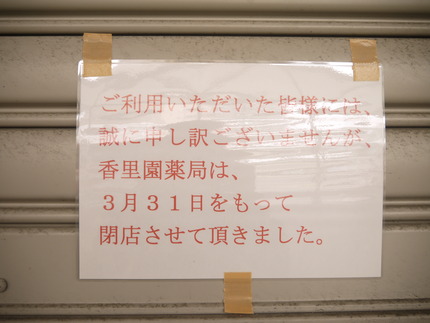 ご利用いただいた皆様には、
誠に申し訳ございませんが、
香里園薬局は、
３月３１日をもって
閉店させて頂きました。